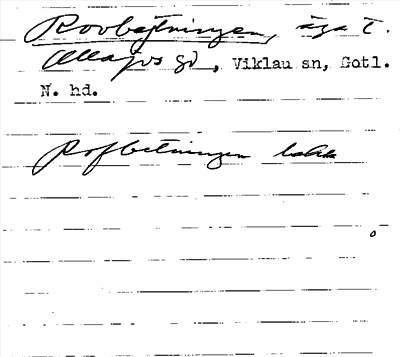 Rovbetningen, äga t.
Allajvs gd, Viklau sn, Gotl.
N. hd.
Rofbetningen